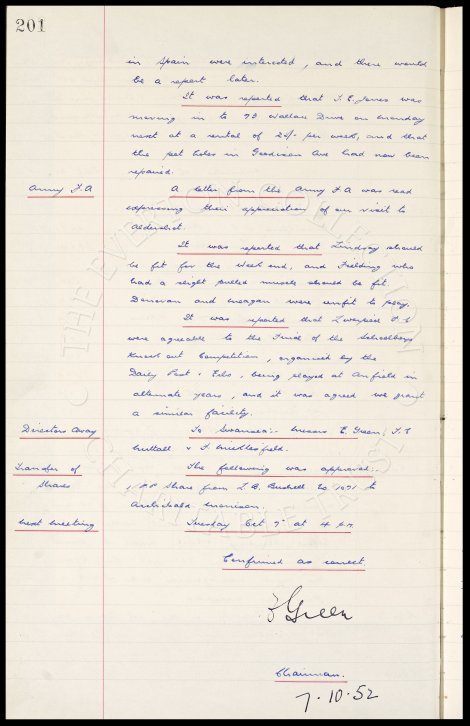 201
in Spain were interested, and there would
be a report later.
It was reported that T.E. Jones was
moving in to 73 Wallace Drive on Monday
next at a rental of 24/- per week, and that
the pot holes in Goodison Ave had now been
repaired.
Army F.A
A letter from the Army F.A was read
expressing their appreciation of our visit to
Aldershot.
It was reported that Lindsay should
be fit for the week end, and Fielding who
had a slight pulled muscle should be fit.
Donovan and Meagan were unfit to play.
It was reported that Liverpool F.C
were agreeable to the Final of the Schoolboys
Knock out Competition, organised by the
Daily Post & Echo, being played at Anfield in
alternate years, and it was agreed we grant
a similar facility.
Directors Away
To Swansea:- Messrs E. Green, T.C
Nuttall & F. Micklesfield.
Transfer of
Shares
The following was approved:-
1 Share from L.B. Bushell No 1071 to
Archibald Morrison.
Next meeting
Tuesday Oct 7th at 4 p.m.
Confirmed as correct.
E Green
Chairman.
7.10.52
THE EVERTON COLLECTION
CHARITABLE TRUST